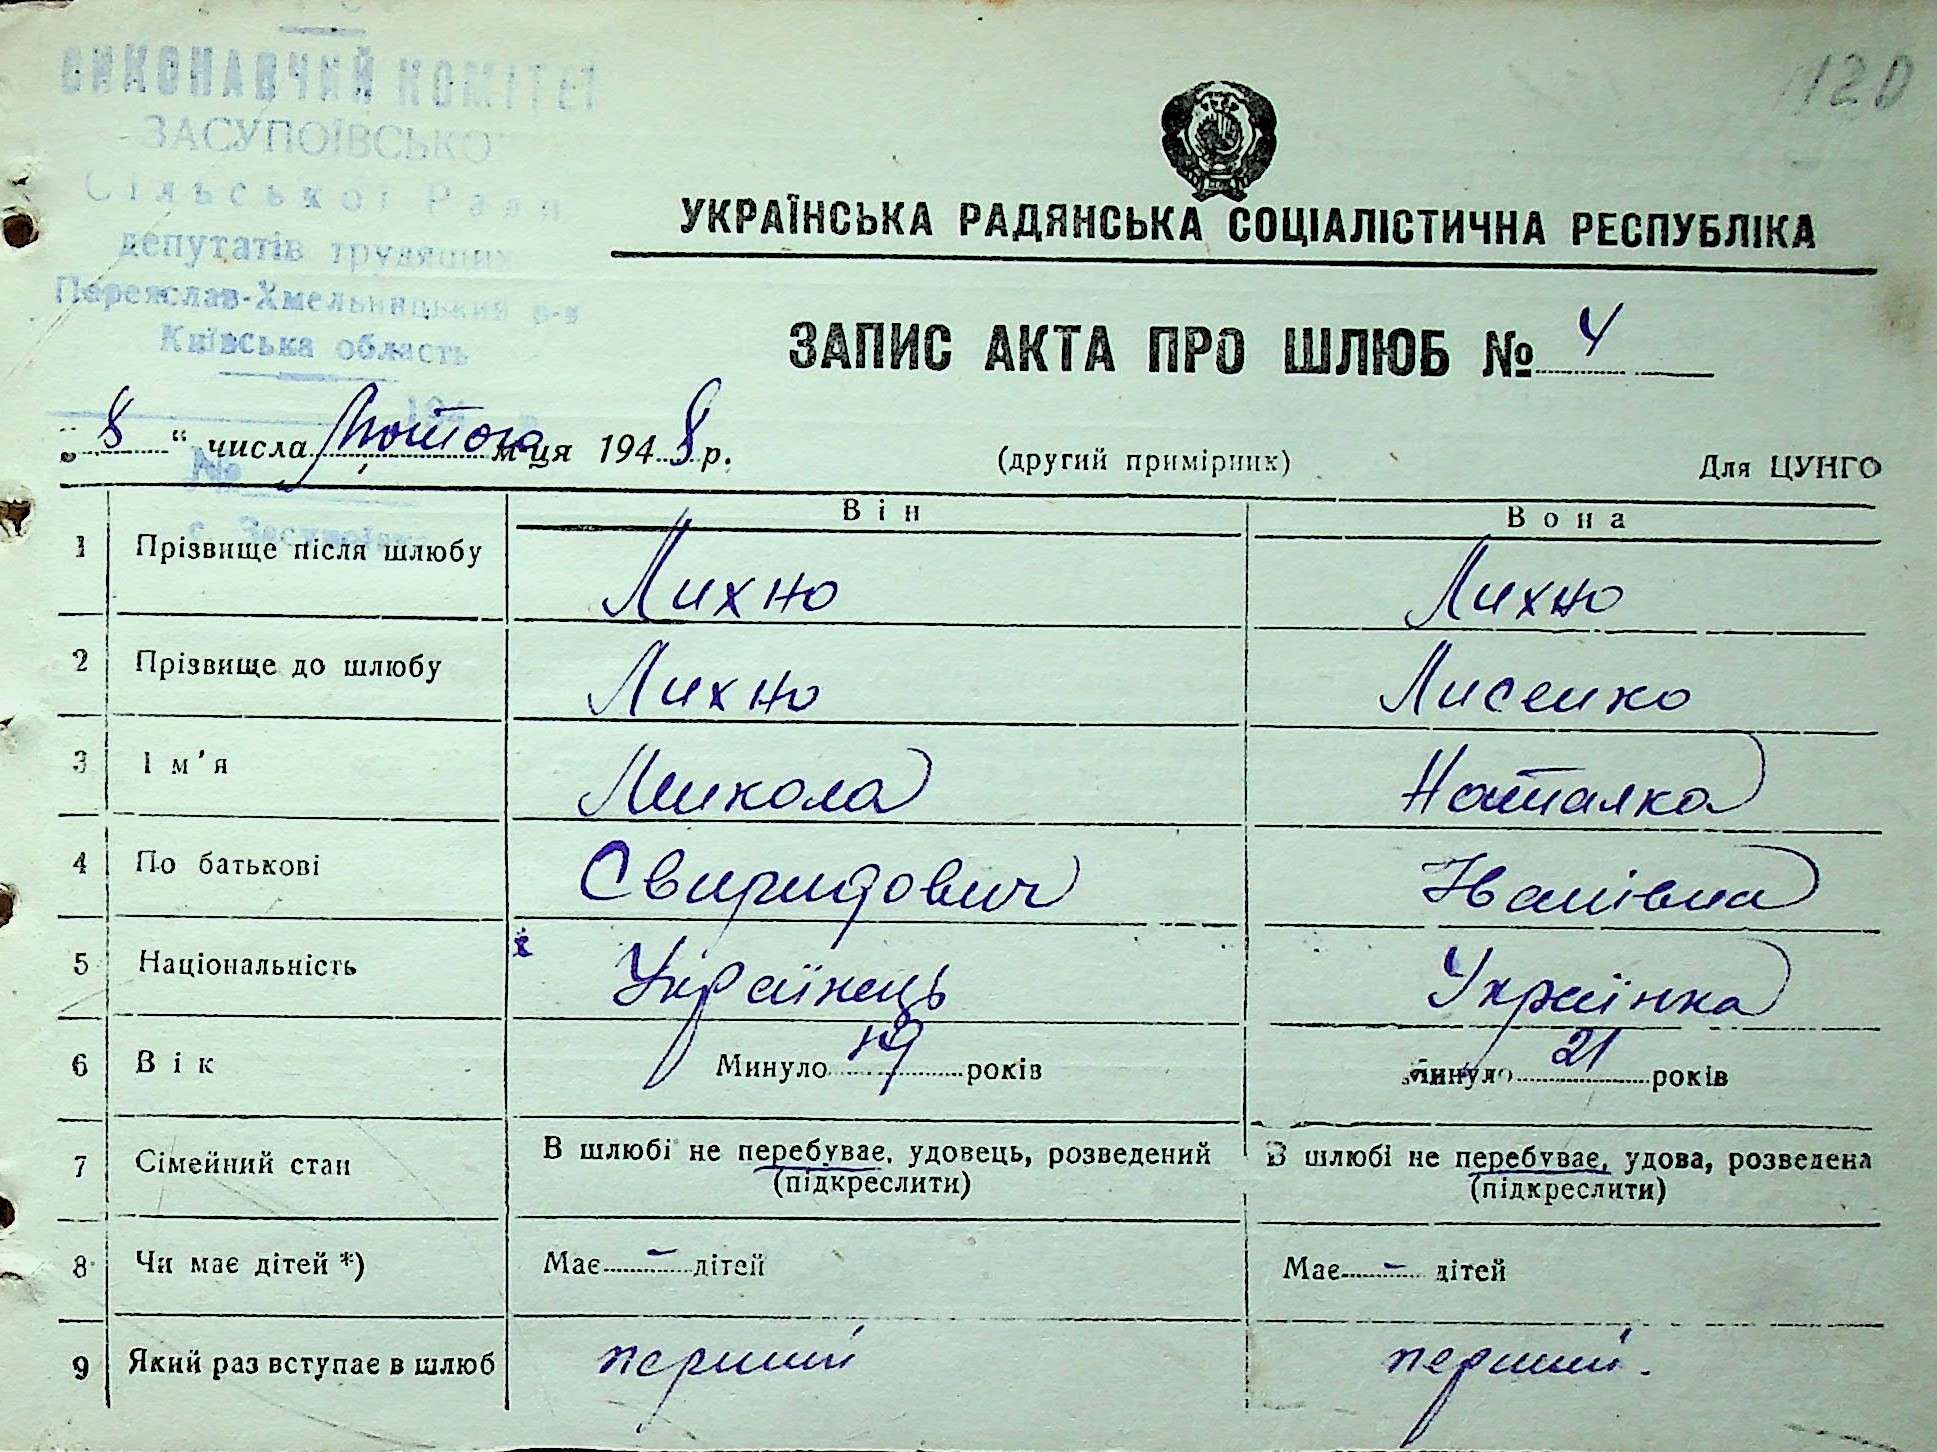 120
ВИКОНАВЧИЙ КОМІТЕТ
ЗАСУПОЇВСЬКО
Сільської Ради
депутатів трудящих
Переяслав-Хмельницький р-н
Київська область
194
№
с. Засупоївка
УКРАЇНСЬКА РАДЯНСЬКА СОЦІАЛІСТИЧНА РЕСПУБЛІКА
ЗАПИС АКТА ПРО ШЛЮБ № 4
„8“ числа Лютого м-ця 1948 р. (другий примірник) Для ЦУНГО
Він Вона
1 Прізвище після шлюбу Лихно Лихно
2 Прізвище до шлюбу Лихно Лисенко
3 Ім'я Микола Наталка
4 По батькові Свиридович Іванівна
5 Національність Українець Українка
6 Вік Минуло 19 років Минуло 21 років
7 Сімейний стан В шлюбі не перебуває, удовець, розведений В шлюбі не перебуває, удова, розведена
(підкреслити) (підкреслити)
8 Чи має дітей *) Має – дітей Має – дітей
9 Який раз вступає в шлюб перший перший.